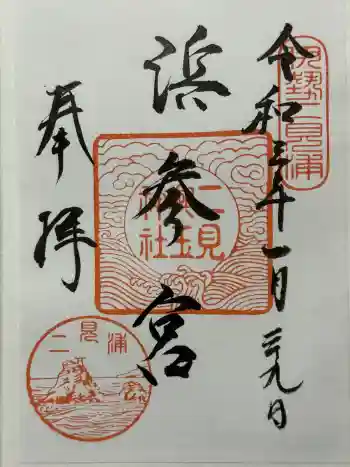 伊勢二見浦
令和三年一月二十九日
浜参宮
二見興玉神社
奉拝
二見浦